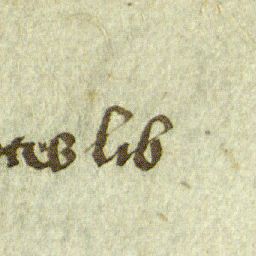 tes lib